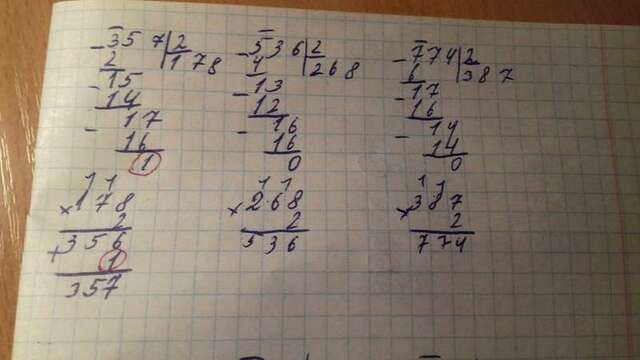 - 357 | 2 - 536 | 2 - 774 | 2
2 178 4 268 6 387
- 15 - 13 - 17
14 12 16
- 17 - 16 - 14
16 16 14
1 0 0
1 1 1 1 1 1
× 178 × 268 × 387
2 2 2
+ 356 536 774
1
357